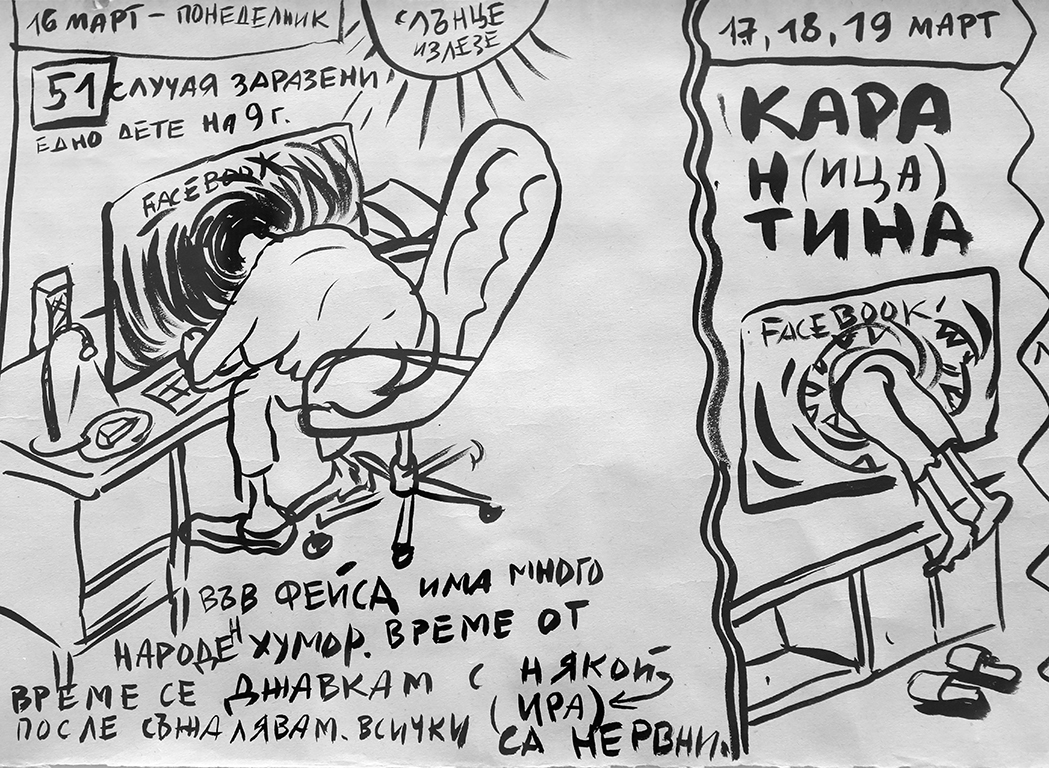 16 МАРТ – ПОНЕДЕЛНИК
СЛЪНЦЕ
ИЗЛЕЗЕ
51 СЛУЧАЯ ЗАРАЗЕНИ
ЕДНО ДЕТЕ НА 9 г.
FACEBOOK
ВЪВ ФЕЙСА ИМА МНОГО
НАРОДЕН ХУМОР. ВРЕМЕ ОТ
ВРЕМЕ СЕ ДЖАВКАМ С НЯКОЙ,
(ИРА)
ПОСЛЕ СЪЖАЛЯВАМ. ВСИЧКИ
СА НЕРВНИ.
17, 18, 19 МАРТ
КАРА
Н(ИЦА)
ТИНА
FACEBOOK